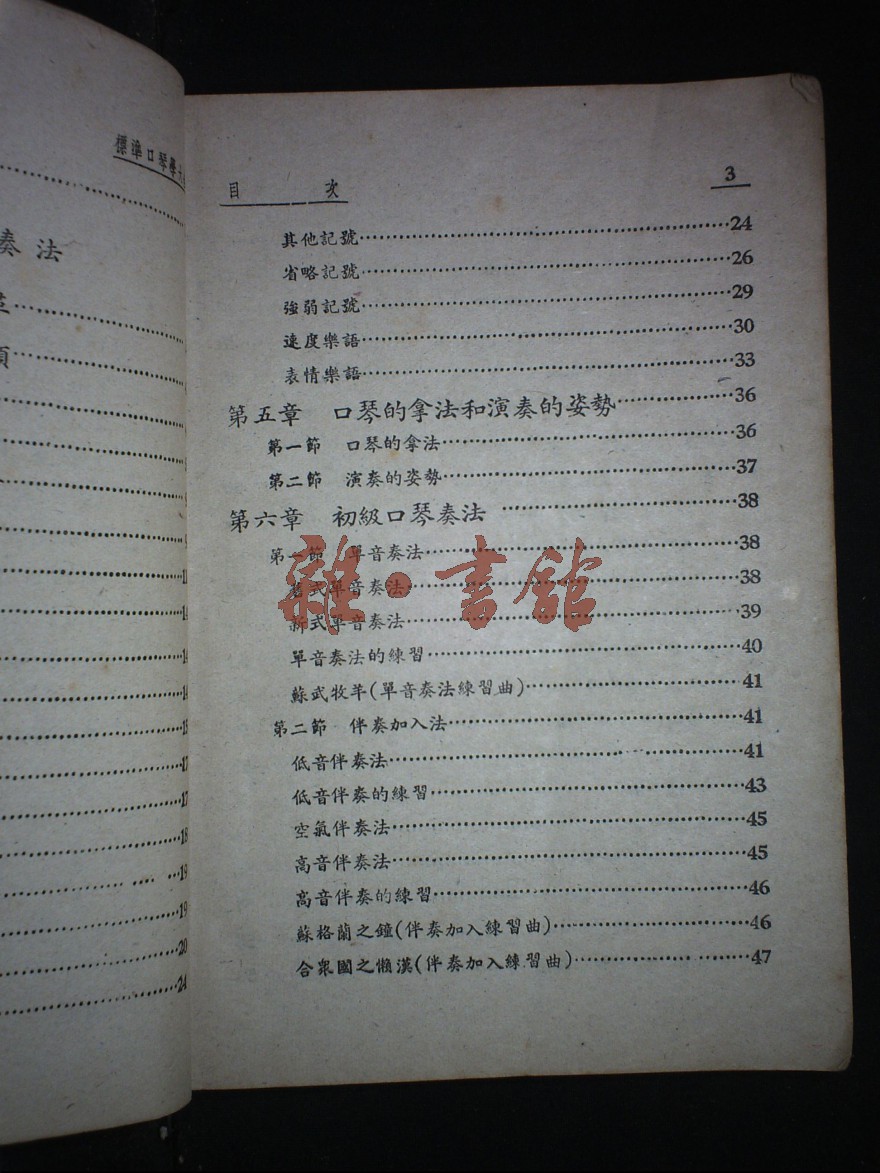 標準口琴學
奏法
11
14
14
14
15
17
17
18
19
19
20
24
目 次 3
其他記號 24
省略記號 26
強弱記號 29
速度樂語 30
表情樂語 33
第五章 口琴的拿法和演奏的姿勢 36
第一節 口琴的拿法 36
第二節 演奏的姿勢 37
第六章 初級口琴奏法 38
第一節 單音奏法 38
舊式單音奏法 38
新式單音奏法 39
單音奏法的練習 40
蘇武牧羊(單音奏法練習曲) 41
第二節 伴奏加入法 41
低音伴奏法 41
低音伴奏的練習 43
空氣伴奏法 45
高音伴奏法 45
高音伴奏的練習 46
蘇格蘭之鐘(伴奏加入練習曲) 46
合眾國之懶漢(伴奏加入練習曲) 47
雜·書館